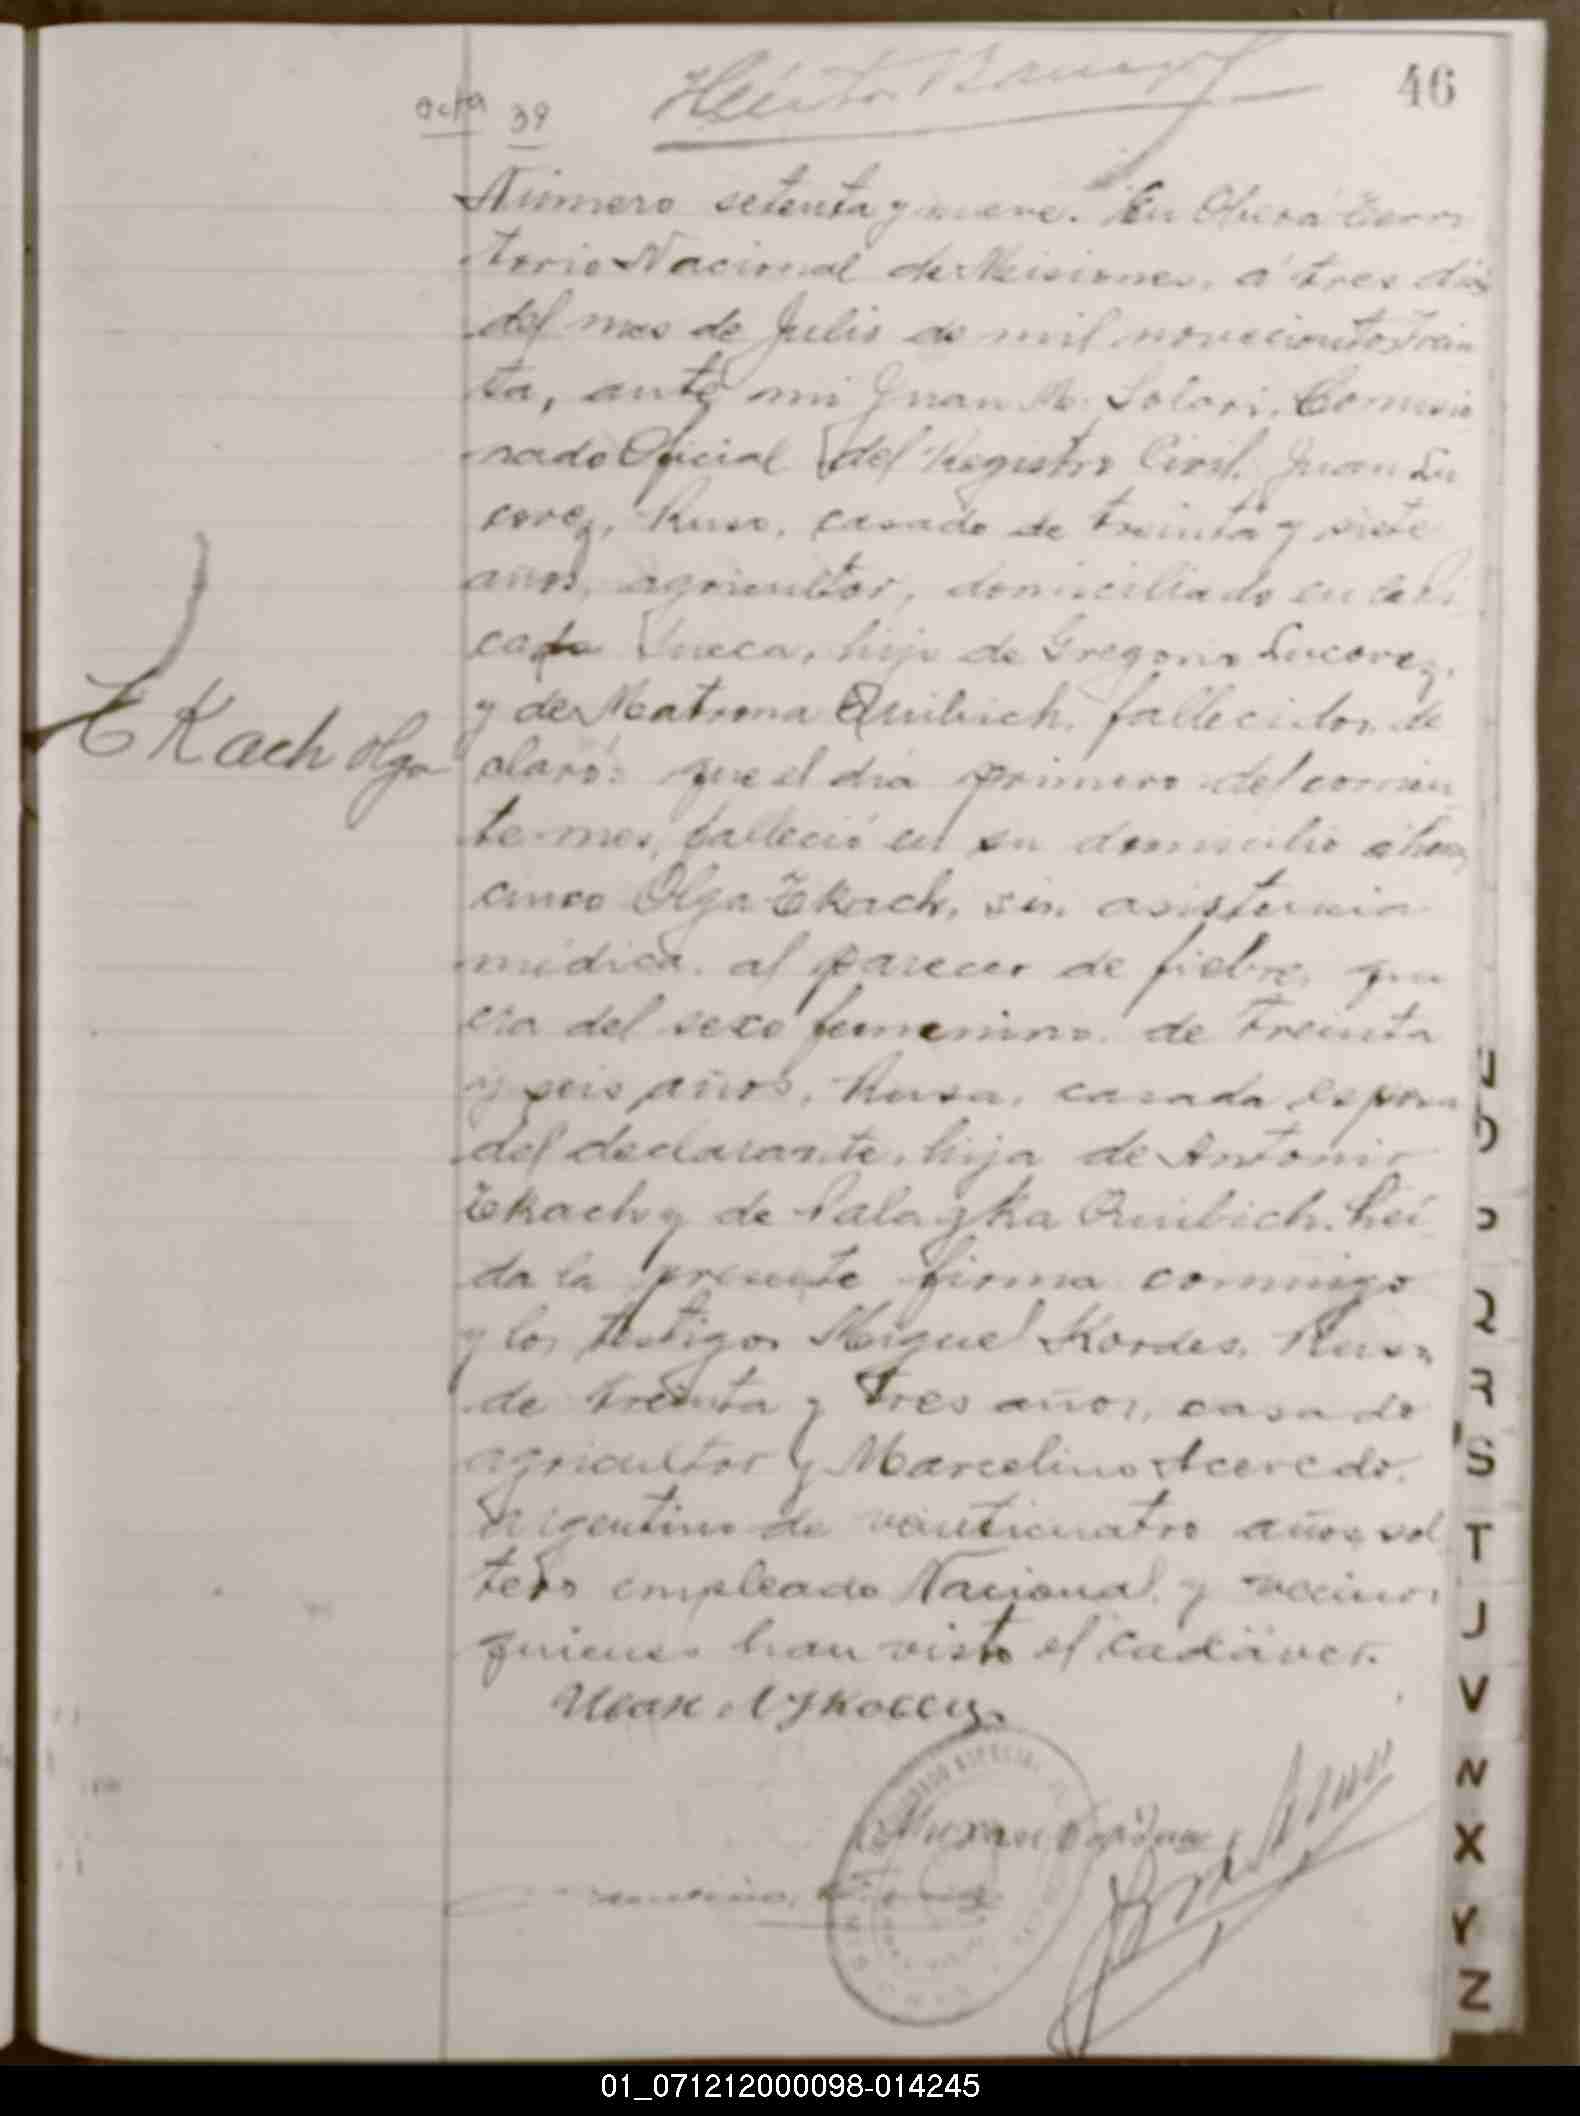 46
acta 39
Número setenta y nueve. En Oberá Terri
torio Nacional de Misiones, á tres dias
del mes de Julio de mil novecientos trein
ta, ante mi Juan M. Solari, Comisio
nado Oficial del Registro Civil, Juan Lu
corez, Ruso, casado de treinta y siete
años, agricultor, domiciliado en la Pi
cada Sueca, hijo de Gregorio Lucorez,
y de Matrona fallecidos, de
claró: que el dia primero del corrien
te mes, falleció en su domicilio á horas
cinco Olga Tkach, sin asistencia
médica. al parecer de fiebre, que
era del sexo femenino. de treinta
y seis años, Rusa, casada esposa
del declarante, hija de Antonio
Tkach y de Palagka Leí
da la presente firma conmigo
y los testigos Miguel Kordes, Ruso,
de treinta y tres años, casado
agricultor y Marcelino Acevedo,
argentino de veinticuatro años, sol
tero empleado Nacional, y vecinos
quienes han visto el cadáver.
Tkach Olga
P
Q
R
S
T
J
V
N
X
Y
Z
01_071212000098-014245